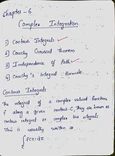 Chapter - 6
Complex Integration
1) Contour Integrals
2) Cauchy Goursat Theorem
3) Independence of Path
4) Cauchy's Integral formula.
Contour Integrals
The integral of a complex valued function
f along a given contour C, they are known as
contour integral or complex line integrals.
This is usually written as
∫f(z)dz